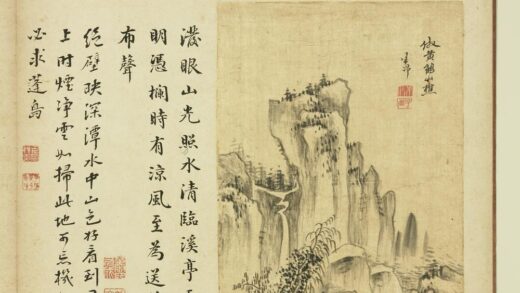 倣黃鶴山樵
潑眼山光照水清臨溪亭
明憑欄時有涼風至為送
布聲
絕壁映深潭水中山色好看到
上時煙淨雲如掃此地可忘機
必求蓬島